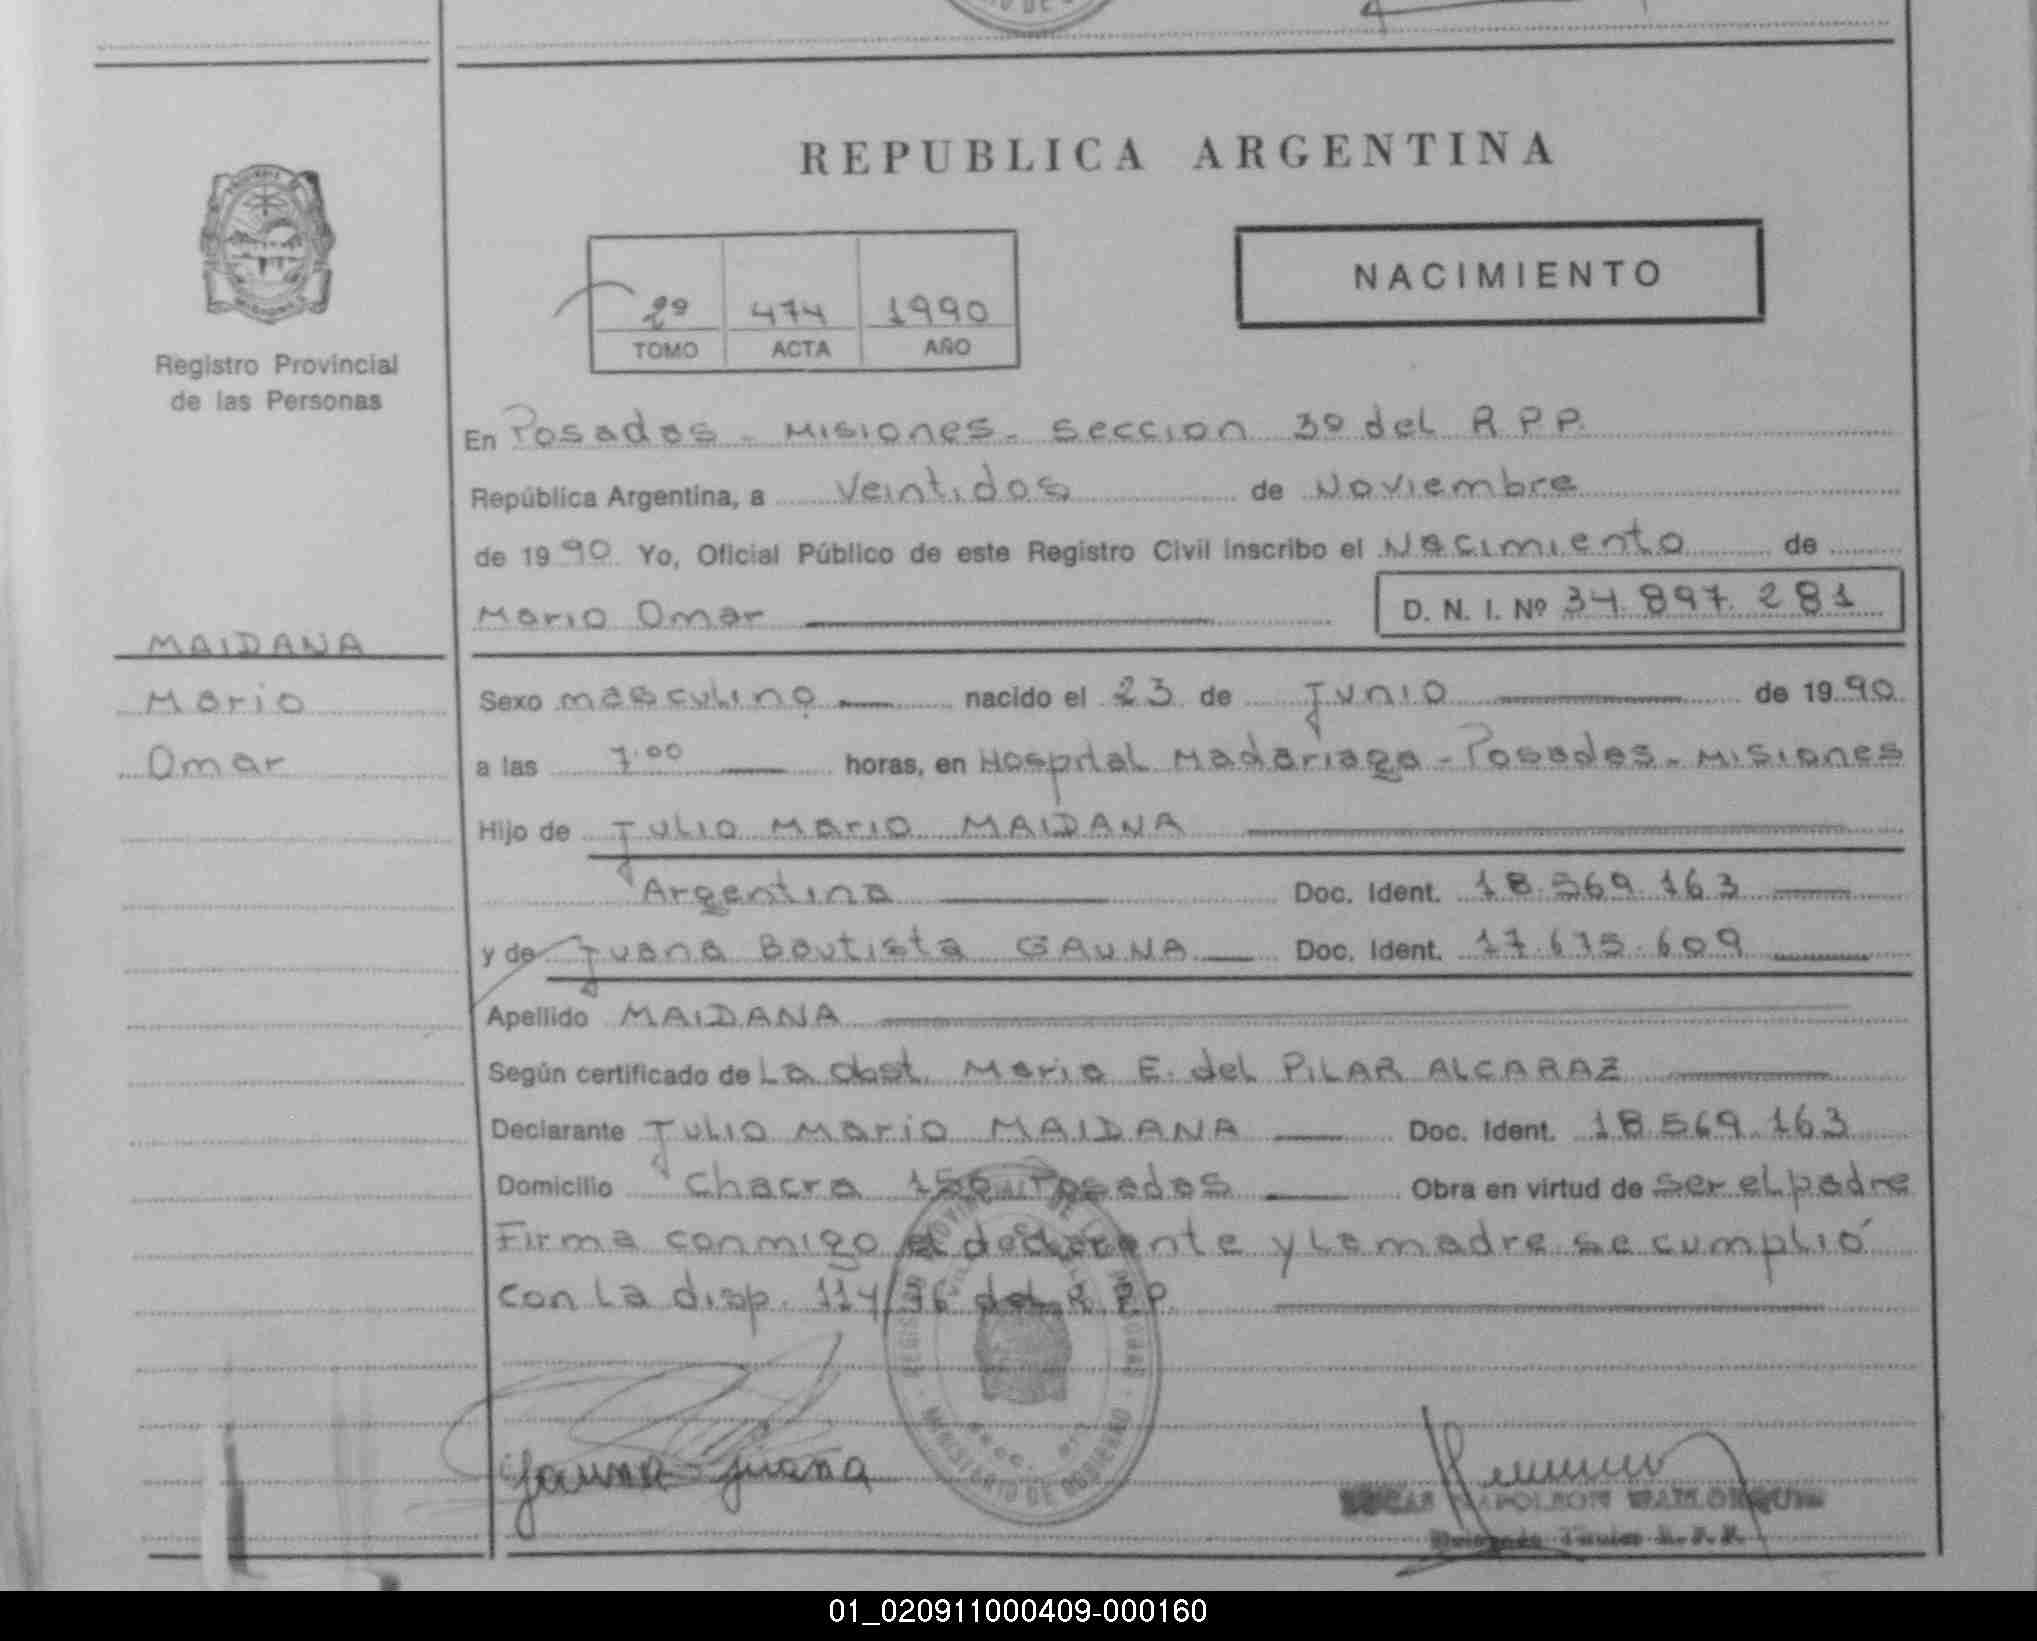 REPUBLICA ARGENTINA
NACIMIENTO
2º 474 1990
TOMO ACTA AÑO
Registro Provincial
de las Personas
En Posadas - Misiones - Seccion 3º del R.P.P.
República Argentina, a Veintidos de Noviembre
de 1990 Yo, Oficial Público de este Registro Civil inscribo el Nacimiento de
Mario Omar D. N. I. Nº 34.897.281
MAIDANA
Mario
Omar
Sexo masculino nacido el 23 de Junio de 1990
a las 7:00 horas, en Hospital Madariaga - Posadas - Misiones
Hijo de Julio Mario MAIDANA
Argentina Doc. Ident. 18.569.163
y de Juana Bautista GAUNA Doc. Ident. 17.675.609
Apellido MAIDANA
Según certificado de La obst. Maria E. del PILAR ALCARAZ
Declarante Julio Mario MAIDANA Doc. Ident. 18.569.163
Domicilio Chacra Posadas Obra en virtud de ser el padre
Firma conmigo el declarante y la madre se cumplió
con la disp. 114/ del R.P.P.
Gauna Juana
MINISTERIO DE GOBIERNO
NAPOLEON
01_020911000409-000160